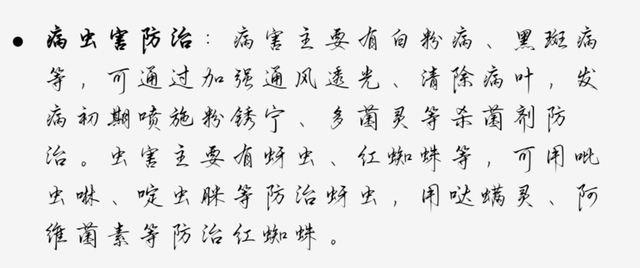 • 病虫害防治：病害主要有白粉病、黑斑病
等，可通过加强通风透光、清除病叶，发
病初期喷施粉锈宁、多菌灵等杀菌剂防
治。虫害主要有蚜虫、红蜘蛛等，可用吡
虫啉、啶虫脒等防治蚜虫，用哒螨灵、阿
维菌素等防治红蜘蛛。